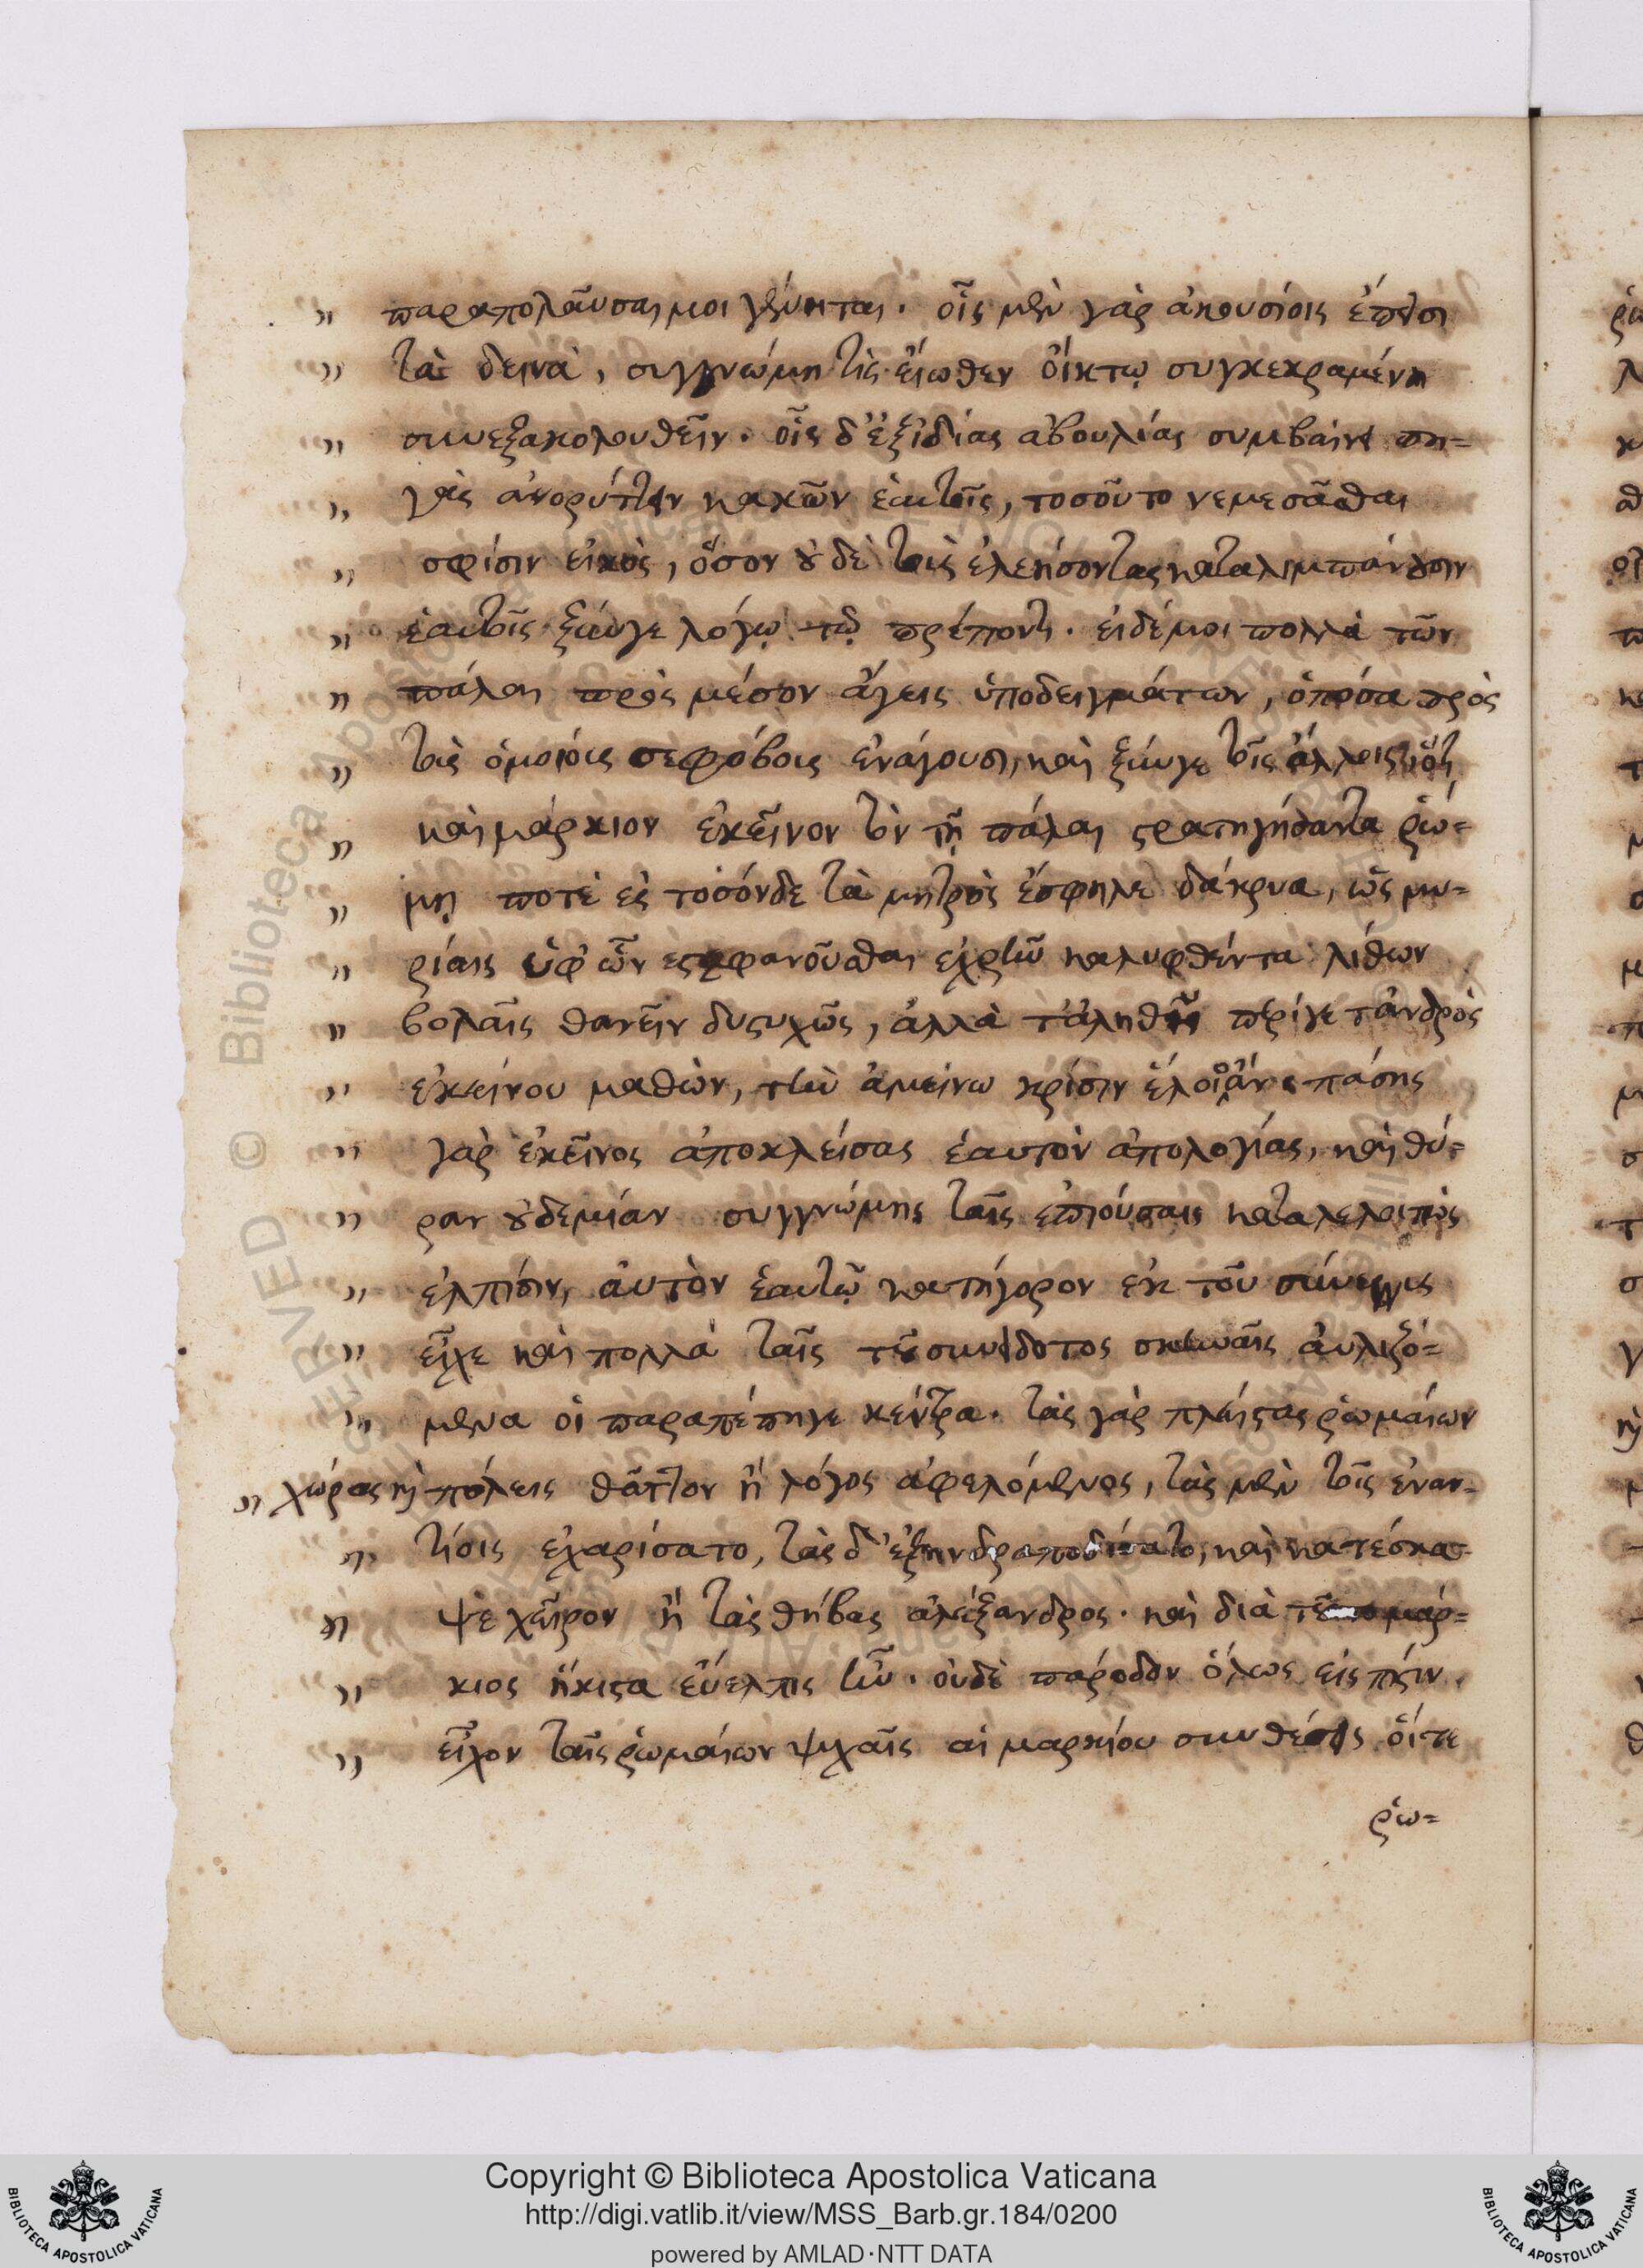 " παραπολαῦσαι μοι γένηται. οἷς μὲν γὰρ ἀκουσίοις ἔπεισι
" τὰ δεινὰ, συγγνώμη τὶς εἴωθεν οἴκτῳ συγκεκραμένη
" συνεξακολουθεῖν. οἷς δ' ἐξ ἰδίας ἀβουλίας συμβαίνει πη=
" γὰς ἀνορύττειν κακῶν ἑαυτοῖς, τοσοῦτο νεμεσᾶσθαι
" σφίσιν εἰκὸς, ὅσον οὐδὲ τοὺς ἐλεήσοντας καταλιμπάνουσιν
" ἑαυτοῖς ξύν γε λόγῳ τῷ πρέποντι. εἰ δέ μοι πολλὰ τῶν
" πάλαι πρὸς μέσον ἄγεις ὑποδειγμάτων, ὁπόσα πρὸς
" τοὺς ὁμοίους σε φόβους ἐνάγουσι, καὶ ξύν γε τοῖς ἄλλοις
" καὶ μάρκιον ἐκεῖνον τὸν τῇ πάλαι στρατηγήσαντα ῥώ=
" μῃ ποτὲ ἐς τοσόνδε τὰ μητρὸς ἔσφηλε δάκρυα, ὡς μυ=
" ρίαις ὑφ' ὧν ἐστεφανοῦσθαι ἐχρῆν καλυφθέντα λίθων
" βολαῖς θανεῖν δυστυχῶς, ἀλλὰ τἀληθῆ περί γε τἀνδρὸς
" ἐκείνου μαθὼν, τὴν ἀμείνω κρίσιν ἕλοι' ἄν. πάσης
" γὰρ ἐκεῖνος ἀποκλείσας ἑαυτὸν ἀπολογίας, καὶ θύ=
" ραν οὐδεμίαν συγγνώμης ταῖς ἐπιούσαις καταλελοιπὼς
" ἐλπίσιν, αὐτὸν ἑαυτῷ κατήγορον ἐκ τοῦ σύνεγγυς
" εἶχε καὶ πολλὰ ταῖς τοῦ συνειδότος σκηναῖς αὐλιζό=
" μενα οἱ παραπέπηγε κέντρα. τὰς γὰρ πλείστας ῥωμαίων
" χώρας καὶ πόλεις θᾶττον ἢ λόγος ἀφελόμενος, τὰς μὲν τοῖς ἐναν=
" τίοις ἐχαρίσατο, τὰς δ' ἐξηνδραποδίσατο, καὶ κατέσκα=
" ψε χεῖρον ἢ τὰς θήβας ἀλέξανδρος. καὶ διὰ μάρ=
" κιος ἥκιστα εὔελπις ἦν. οὐδὲ πάροδον ὅλως εἰς πίστιν
" εἶχον ταῖς ῥωμαίων ψυχαῖς αἱ μαρκίου συνθέσεις οἵ τε
ῥω=
Copyright © Biblioteca Apostolica Vaticana
http://digi.vatlib.it/view/MSS_Barb.gr.184/0200
powered by AMLAD·NTT DATA
BIBLIOTECA APOSTOLICA VATICANA
BIBLIOTECA APOSTOLICA VATICANA